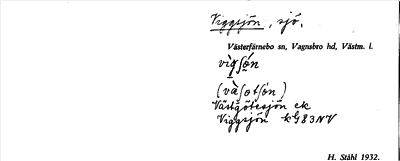 Viggsjön, sjö.
Västerfärnebo sn, Vagnsbro hd, Västm. l.
Västgötesjön ek
Viggsjön kG83NV
H. Ståhl 1932.